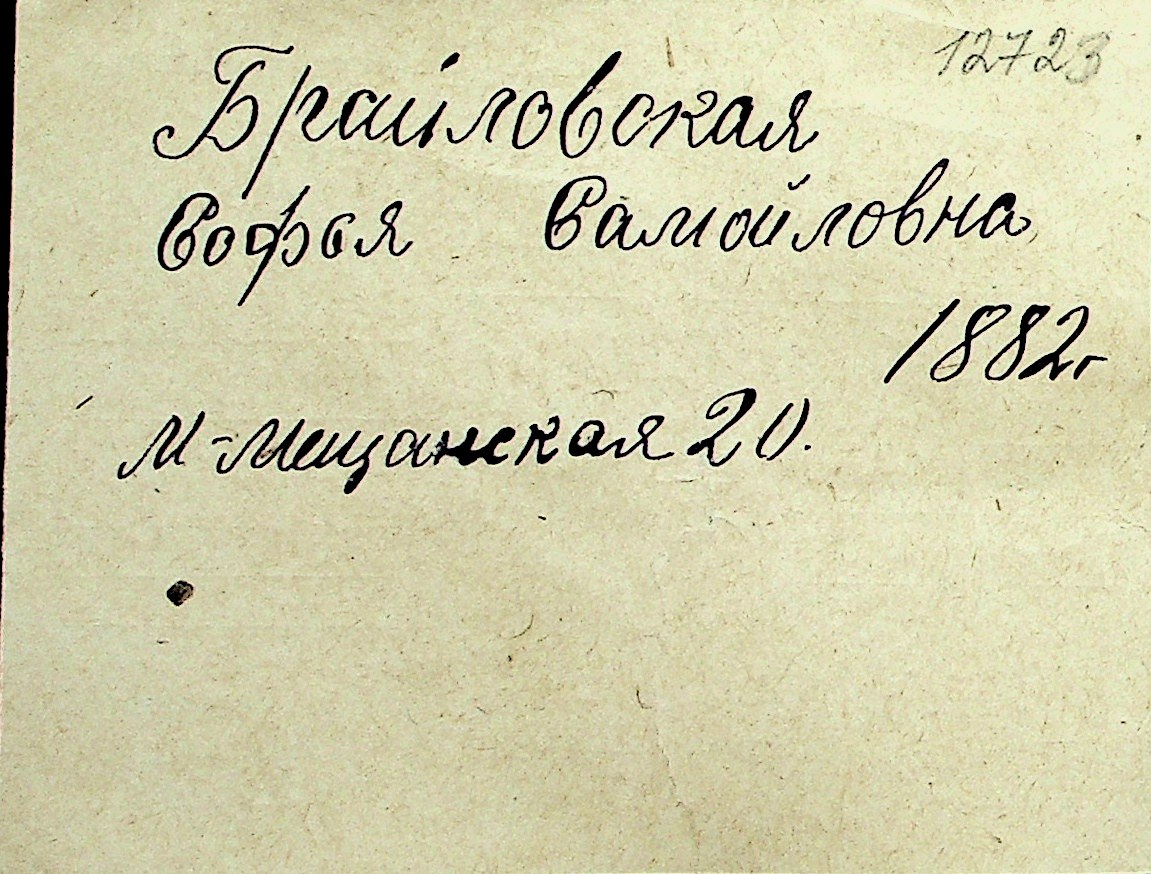 12723
Брайловская
Софья Самойловна
1882г
М-Мещанская 20.